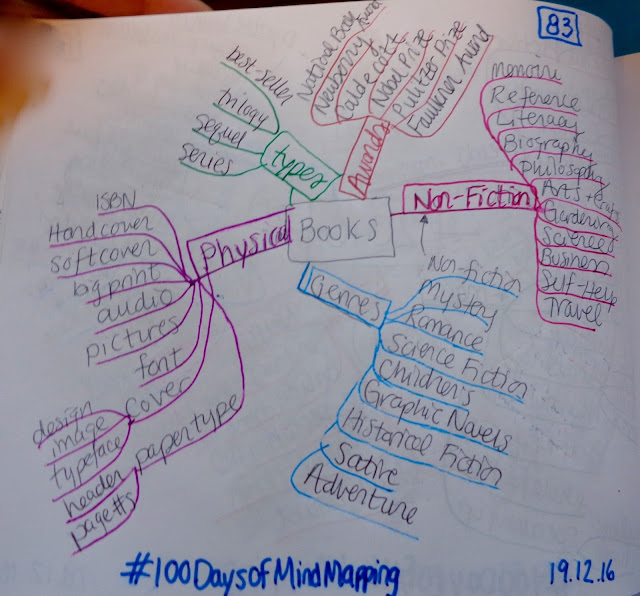 83
Books
types
best-seller
trilogy
sequel
series
Awards
National Book Award
Newberry
Caldecott
Nobel Prize
Pulitzer Prize
Faulkner Award
Non-Fiction
memoire
Reference
Literacy
Biography
Philosophy
Arts + Crafts
Gardening
Sciences
Business
Self-Help
Travel
Genres
Non-fiction
Mystery
Romance
Science Fiction
Children's
Graphic Novels
Historical Fiction
Satire
Adventure
Physical
ISBN
Hardcover
softcover
bg print
audio
pictures
font
cover
design
image
typeface
papertype
header
page #s
#100DaysofMindMapping
19.12.16